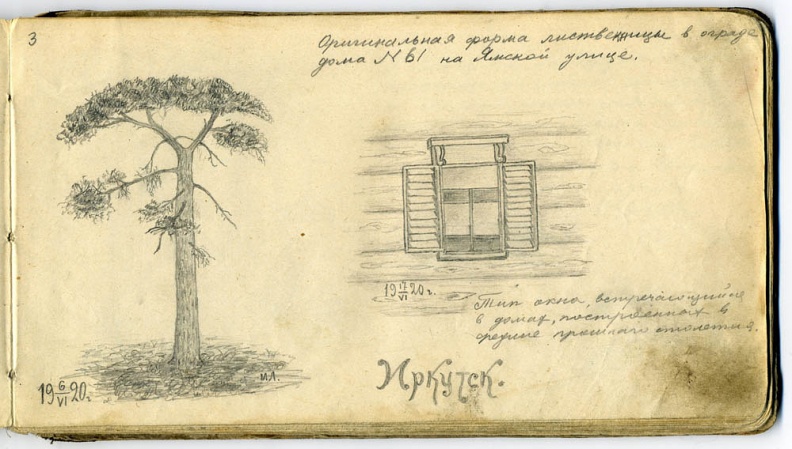 3
Оригинальная форма лиственницы в ограде
дома № 61 на Ямской улице.
19 17/VI 20 г.
Тип окна, встречающийся
в домах, построенных в
средине прошлаго столетия.
Иркутск.
И.Л.
19 6/VI 20 г.